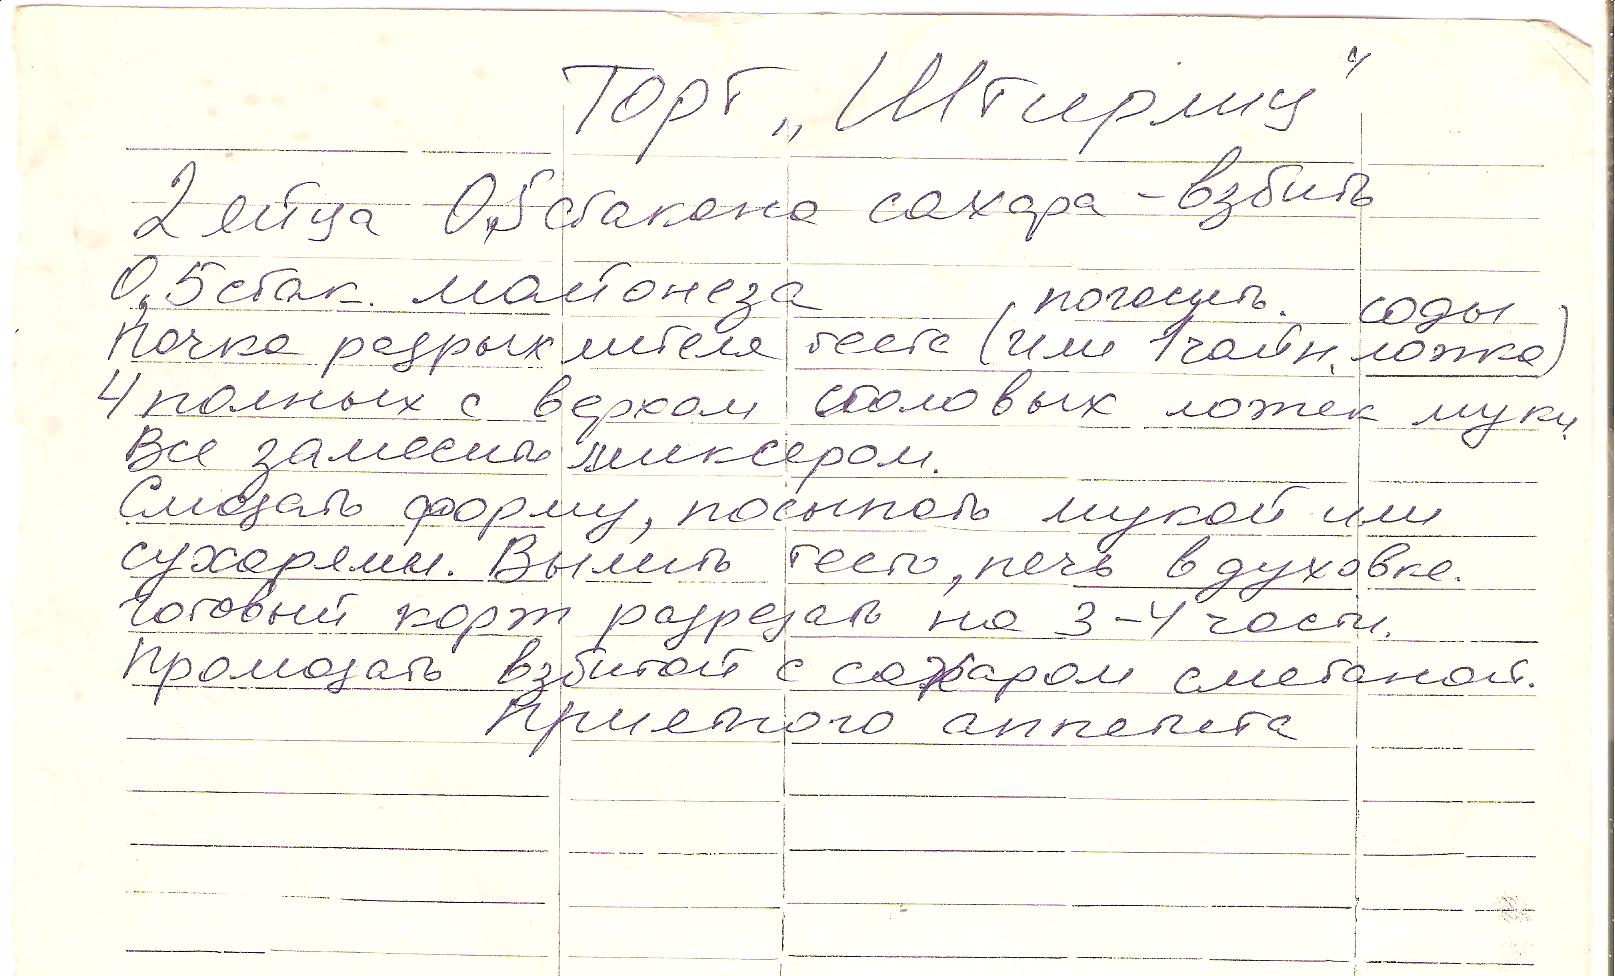 Торт „Штирлиц“
2 яйца 0,5 стакана сахара - взбить
0,5 стак. майонеза
погасить. соды
Пачка разрыхлителя теста (или 1 чайн. ложка)
4 полных с верхом столовых ложек муки.
Все замесить миксером.
Смазать форму, посыпать мукой или
сухарями. Вылить тесто, печь в духовке.
Готовый корж разрезать на 3-4 части.
Промазать взбитой с сахаром сметаной.
Приятного аппетита